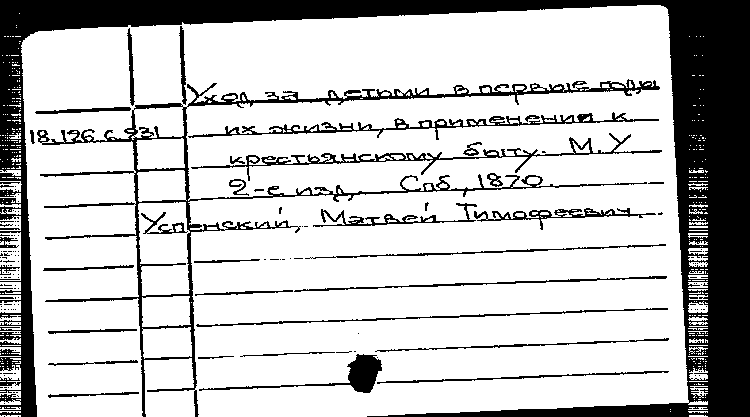 Уход за детьми в первые годы
18.126 6.931 их жизни, в применении к
крестьянскому быту. М. У
2-е изд. Спб, 1870.
Успенский, Матвей Тимофеевич.